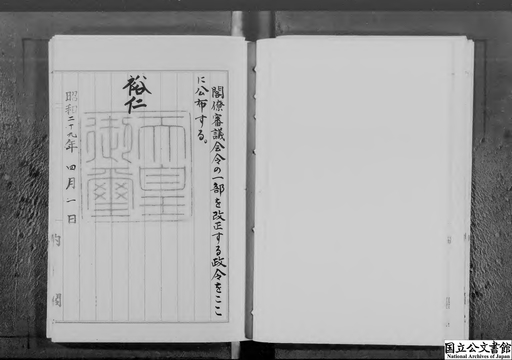 閣僚審議会令の一部を改正する政令をここ
に公布する。
裕仁
天皇
御璽
昭和二十九年四月一日
内閣
国立公文書館
National Archives of Japan